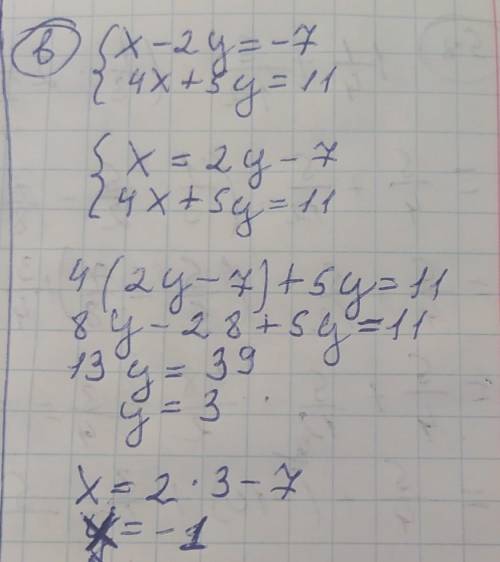 в) { x - 2y = -7
{ 4x + 5y = 11
{ x = 2y - 7
{ 4x + 5y = 11
4(2y - 7) + 5y = 11
8y - 28 + 5y = 11
13y = 39
y = 3
x = 2 · 3 - 7
x = -1